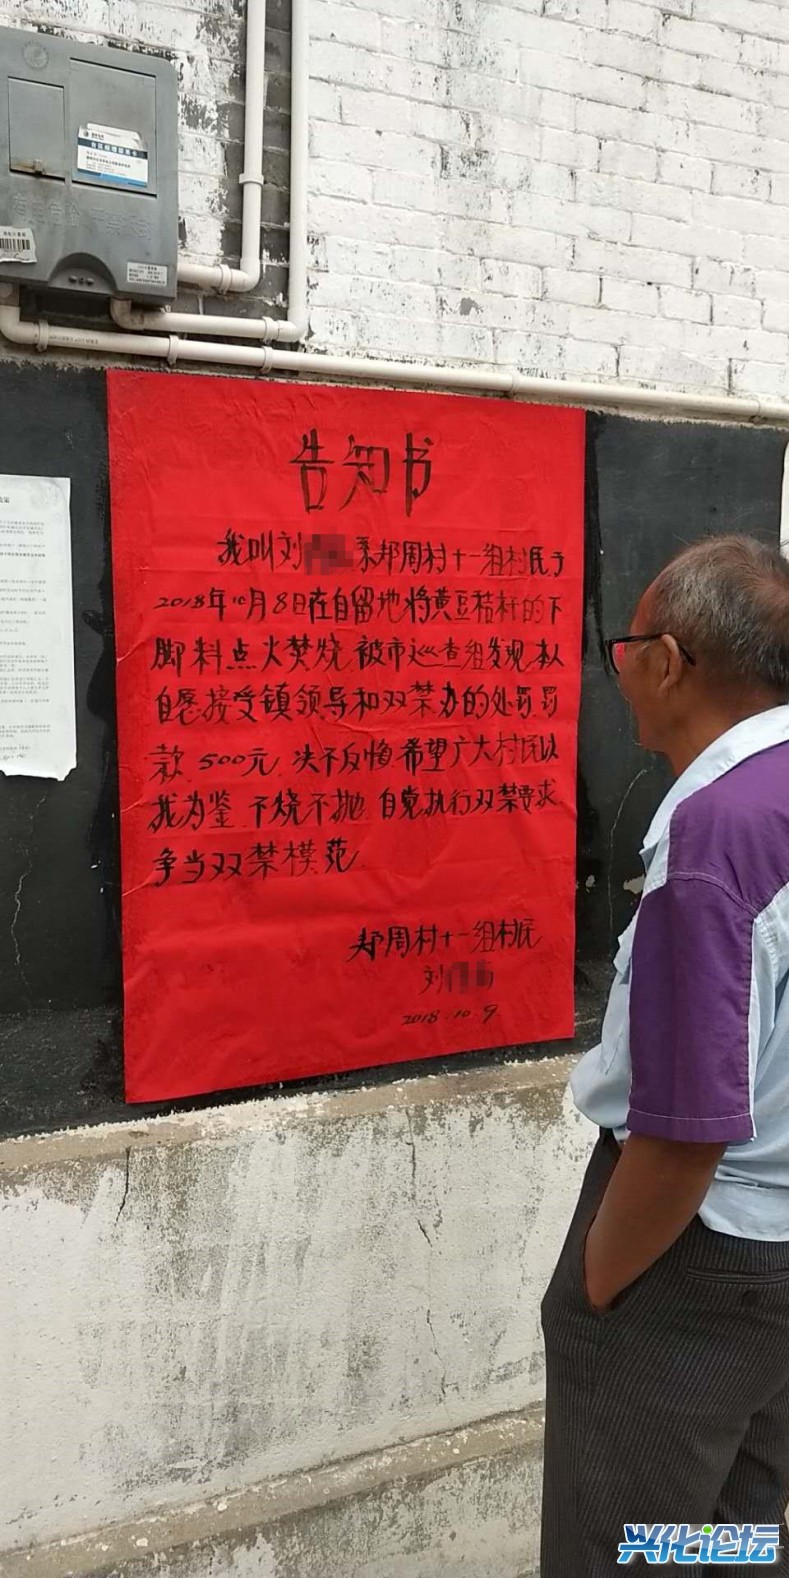 告知书
我叫刘 系邦周村十一组村民于
2018年10月8日在自留地将黄豆秸秆的下
脚料点火焚烧,被市巡查组发现,本人
自愿接受镇领导和双禁办的处罚,罚
款500元,决不反悔,希望广大村民以
我为鉴,不烧不抛,自觉执行双禁要求,
争当双禁模范.
邦周村十一组村民
刘
2018.10.9.
兴化论坛